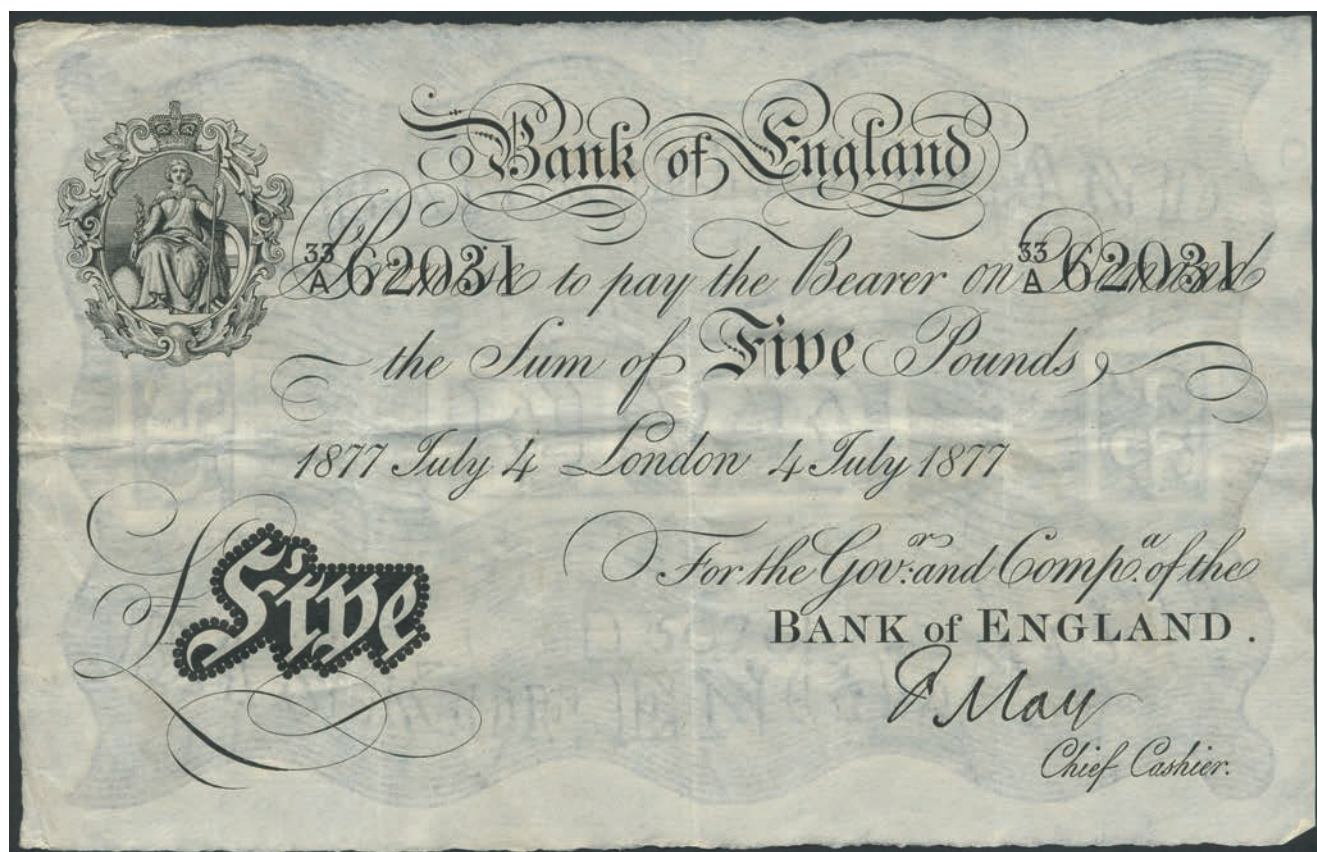 Bank of England
33/A 62031 I Promise to pay the Bearer on Demand 33/A 62031
the Sum of Five Pounds,
1877 July 4 London 4 July 1877
For the Gov.or and Comp.a of the
BANK of ENGLAND.
£Five
F May
Chief Cashier.